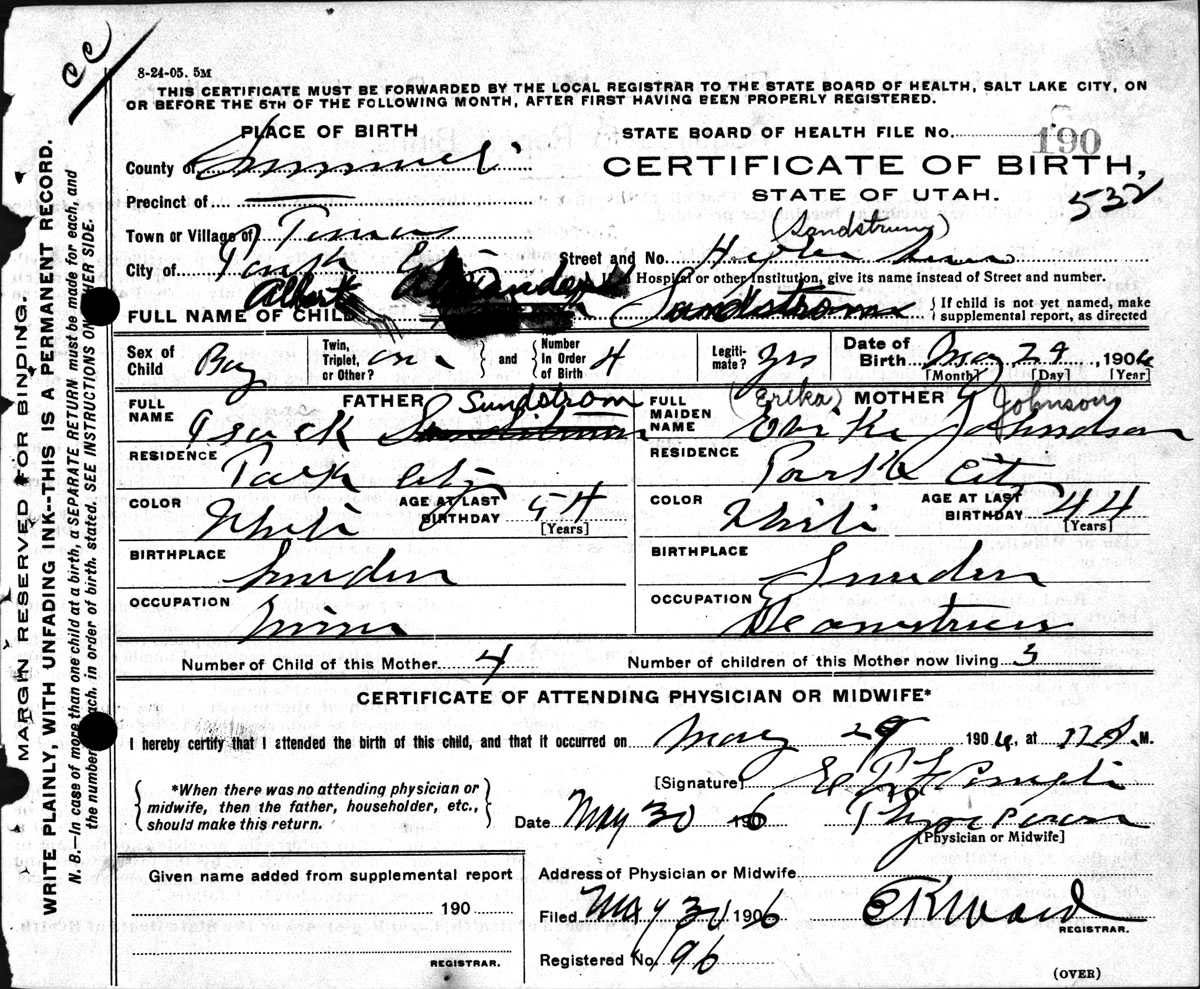 CC
8-24-05. 5M
THIS CERTIFICATE MUST BE FORWARDED BY THE LOCAL REGISTRAR TO THE STATE BOARD OF HEALTH, SALT LAKE CITY, ON
OR BEFORE THE 5TH OF THE FOLLOWING MONTH, AFTER FIRST HAVING BEEN PROPERLY REGISTERED.
PLACE OF BIRTH
STATE BOARD OF HEALTH FILE No. 190
County of Summit
CERTIFICATE OF BIRTH,
STATE OF UTAH.
532
Precinct of
Town or Village of
(Sandstrum)
City of Park City
Street and No.
Hospital or other Institution, give its name instead of Street and number.
FULL NAME OF CHILD Albert Alexander Sandstrom
If child is not yet named, make
supplemental report, as directed
Sex of Child Boy
Twin, Triplet, or Other? and Number In Order of Birth 4
Legiti-mate? yes
Date of Birth May 29, 1906
[Month] [Day] [Year]
FATHER
FULL NAME Sundstrom
RESIDENCE Park City
COLOR White
AGE AT LAST BIRTHDAY 54 [Years]
BIRTHPLACE Sweden
OCCUPATION Miner
(Erika) MOTHER Johnson
FULL MAIDEN NAME
RESIDENCE Park City
COLOR White
AGE AT LAST BIRTHDAY 44 [Years]
BIRTHPLACE Sweden
OCCUPATION Seamstress
Number of Child of this Mother 4
Number of children of this Mother now living 3
CERTIFICATE OF ATTENDING PHYSICIAN OR MIDWIFE*
I hereby certify that I attended the birth of this child, and that it occurred on May 29 1906, at 11 A. M.
*When there was no attending physician or
midwife, then the father, householder, etc.,
should make this return.
[Signature]
Date May 30 1906 Physician
[Physician or Midwife]
Given name added from supplemental report
190
REGISTRAR.
Address of Physician or Midwife
Filed May 30 1906 E R Ward
REGISTRAR.
Registered No. 196
(OVER)
MARGIN RESERVED FOR BINDING.
WRITE PLAINLY, WITH UNFADING INK--THIS IS A PERMANENT RECORD.
N. B.—In case of more than one child at a birth, a SEPARATE RETURN must be made for each, and
the number each. in order of birth. stated. SEE INSTRUCTIONS ON OTHER SIDE.